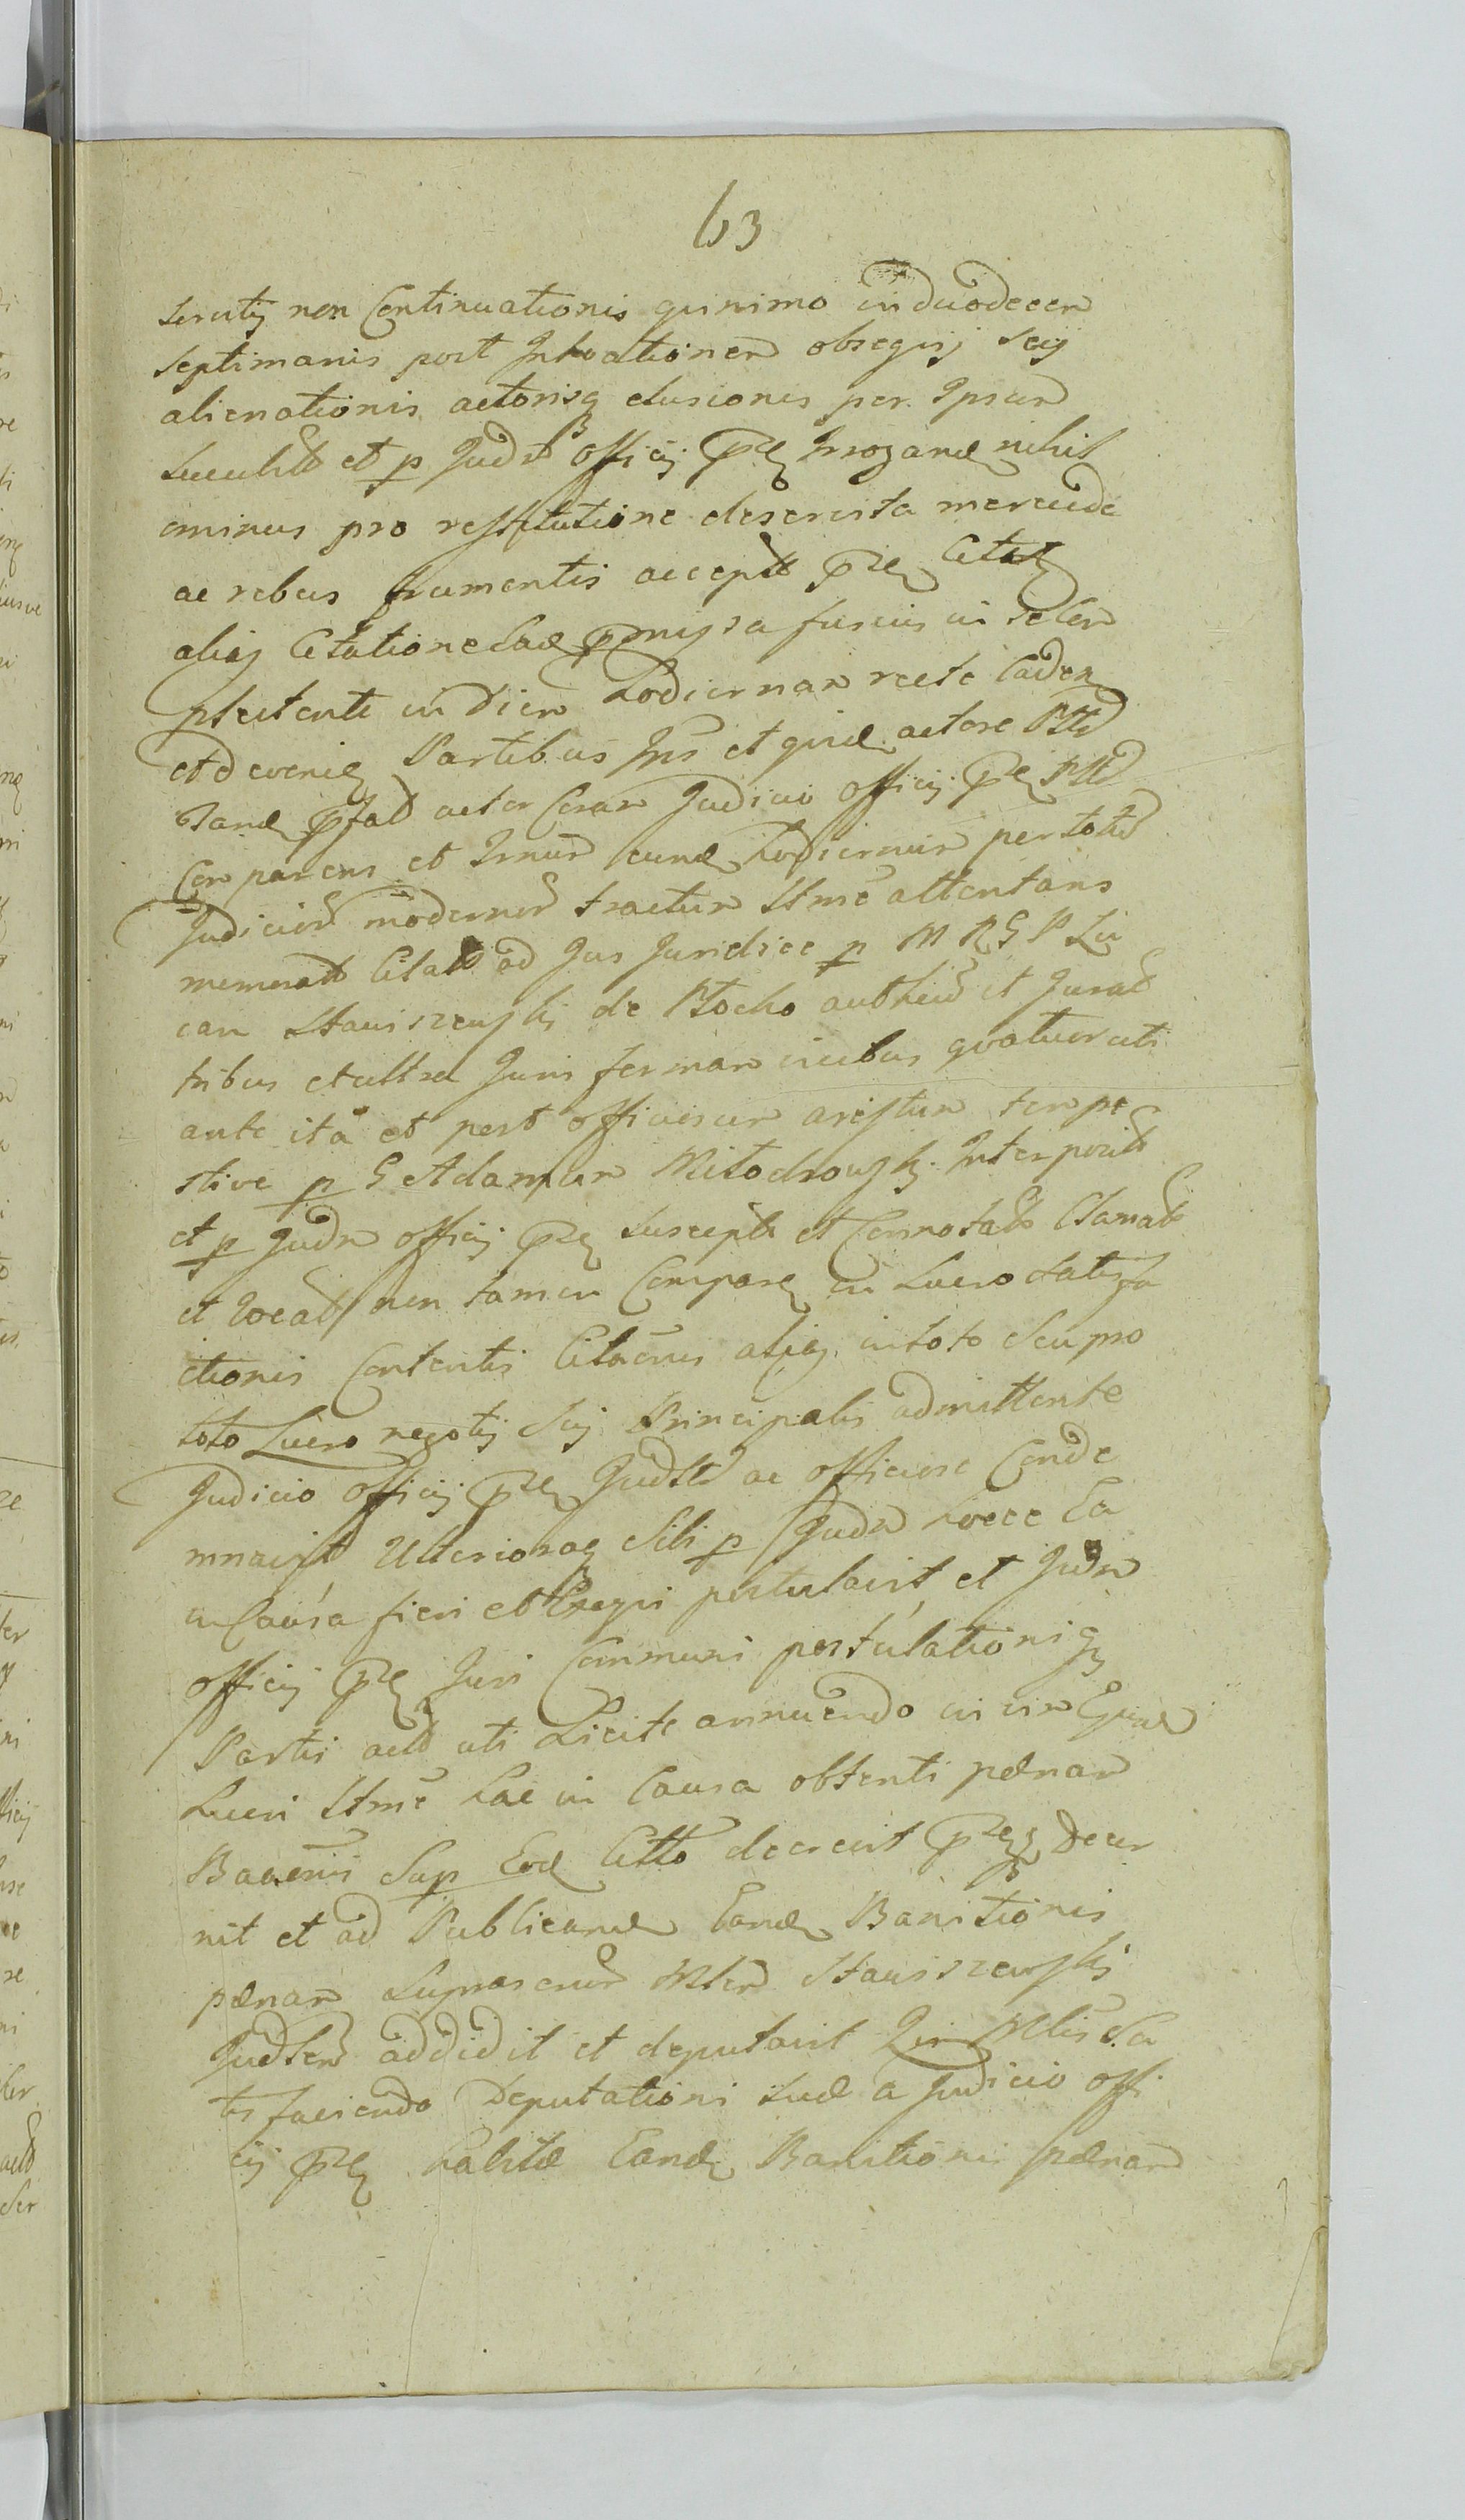 63
servitij non Continuationis quinimo in duodecem
septimanis post Intrationem obsequij seu
alienationis actorisq elusiones per Ipsum
et p Judm Officij irrogand nihil
ominus pro restitutione deservita mercede
ac rebus frumentis accept Citat
aliaq Citatione had pmissa fusius in se Com
plectente in Diem hodiernam recte Caden
et deveniẽ Partibus Ips et quid actore
Tand pfat actor Coram Judicio Officij
Comparens et Irnum hodiernum per totum
Judicium modernum tractum ttmẽ attentans
memorat Citat ad Jus Juridice p M R G P Lu
cam Staniszewski de Plocko authen et Jurat
tribus et ultra Juris formam vicibus quatuor uti
ante ita et post officiosam arestum tempe
stive p G Adamum Mitodrowski Interposit
et p Judm officij suscept et Connotat Clamat
et Vocat non tamen Comparẽ in Lucro satisfa
ctionis Contentis Citãonis aliaq in toto seu pro
toto Lucro negotij sui Principalis admittente
Judicio Officij ac officiose Conde
mnavit Ulterioraq sibi p Judm hocce Ea
in Causa fieri et Exequi postulavit et Judm
officij Juri Communi postulationiq
Partis act uti Licite annuendo in vim
Lucri ttmẽ hac in Causa obtenti pænam
Banẽnis Sup Eod Citto decrevit Decer
nit et ad Publicand Eand Banitionis
pænam Supraserm Mtem Staniszewski
addidit et deputavit Qui Mtis Sa
tisfaciendo Deputationi sud a Judicio offi
cij habitæ Eand Banitionis pænam